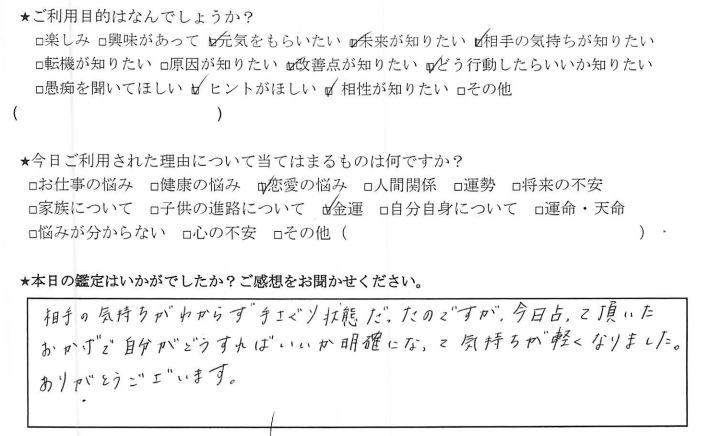 ★ご利用目的はなんでしょうか？
□楽しみ □興味があって ☑元気をもらいたい ☑未来が知りたい ☑相手の気持ちが知りたい
□転機が知りたい □原因が知りたい ☑改善点が知りたい ☑どう行動したらいいか知りたい
□愚痴を聞いてほしい ☑ヒントがほしい ☑相性が知りたい □その他
(　　　　　　　　　　　　)
★今日ご利用された理由について当てはまるものは何ですか？
□お仕事の悩み □健康の悩み ☑恋愛の悩み □人間関係 □運勢 □将来の不安
□家族について □子供の進路について ☑金運 □自分自身について □運命・天命
□悩みが分からない □心の不安 □その他（　　　　　　　　　　　　　　　　）
★本日の鑑定はいかがでしたか？ご感想をお聞かせください。
相手の気持ちがわからず手さぐり状態だったのですが、今日占って頂いた
おかげで自分がどうすればいいか明確になって気持ちが軽くなりました。
ありがとうございます。